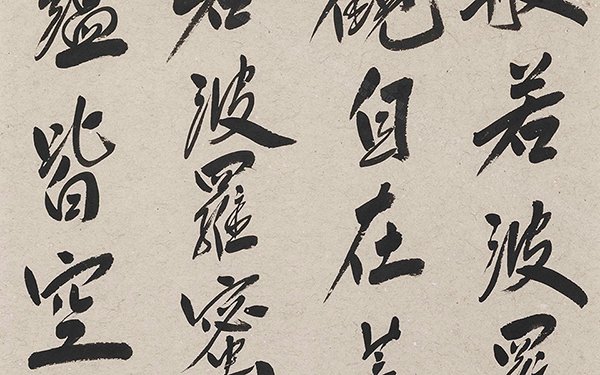 般若波羅
觀自在菩
若波羅蜜
蘊皆空